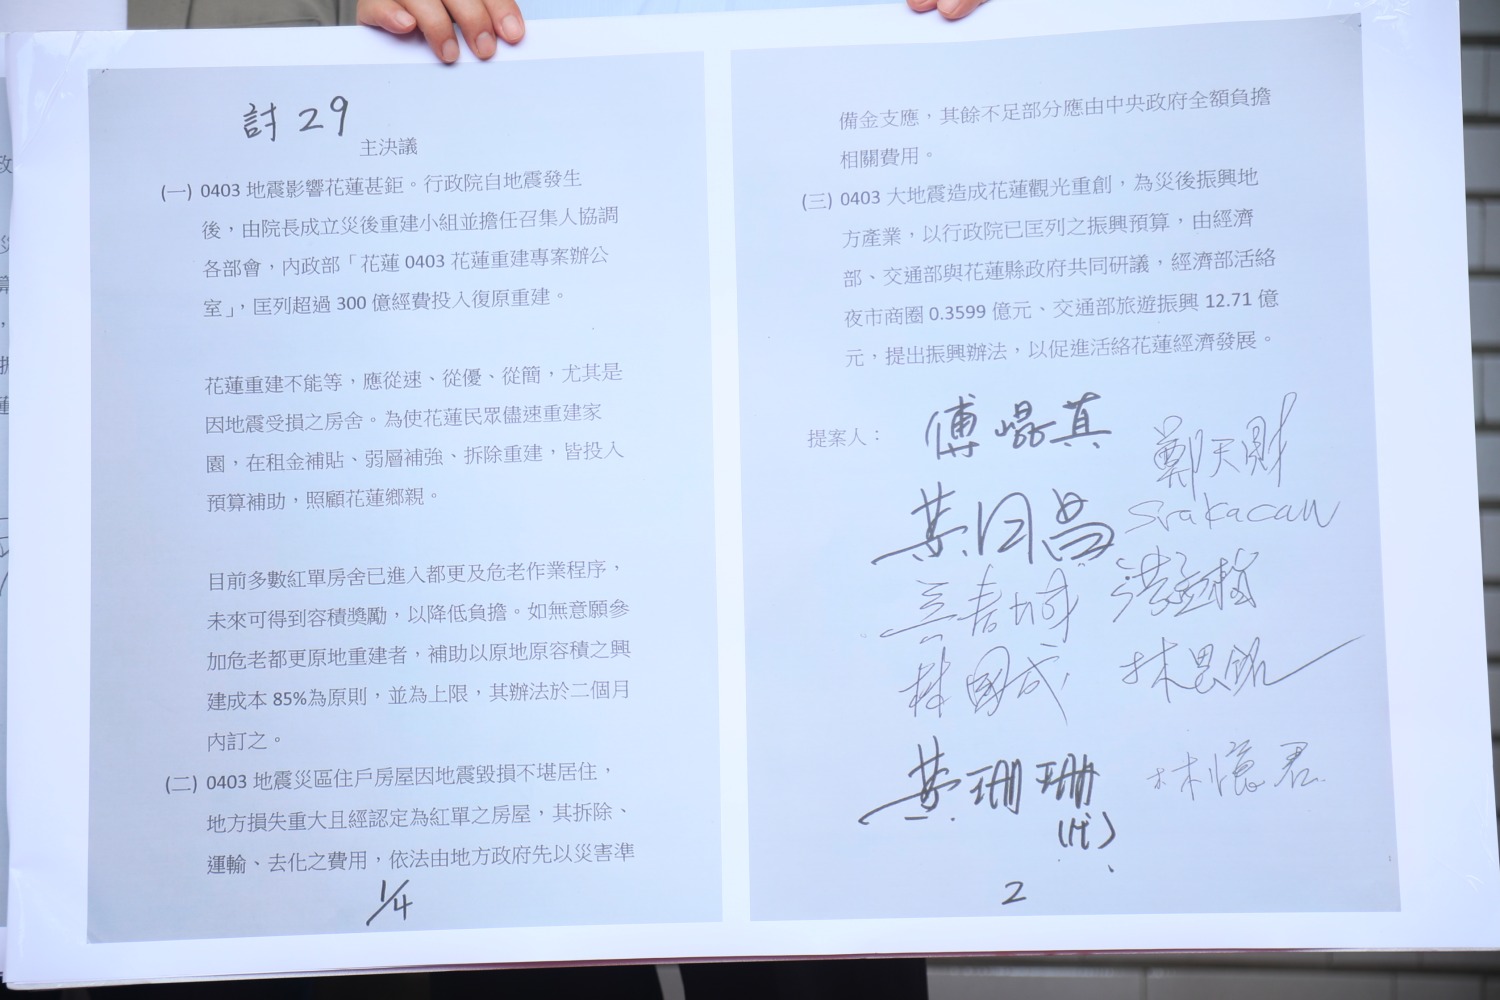 討 29
主決議
(一) 0403 地震影響花蓮甚鉅。行政院自地震發生
後，由院長成立災後重建小組並擔任召集人協調
各部會，內政部「花蓮 0403 花蓮重建專案辦公
室」，匡列超過 300 億經費投入復原重建。
花蓮重建不能等，應從速、從優、從簡，尤其是
因地震受損之房舍。為使花蓮民眾儘速重建家
園，在租金補貼、弱層補強、拆除重建，皆投入
預算補助，照顧花蓮鄉親。
目前多數紅單房舍已進入都更及危老作業程序，
未來可得到容積獎勵，以降低負擔。如無意願參
加危老都更原地重建者，補助以原地原容積之興
建成本 85%為原則，並為上限，其辦法於二個月
內訂之。
(二) 0403 地震災區住戶房屋因地震毀損不堪居住，
地方損失重大且經認定為紅單之房屋，其拆除、
運輸、去化之費用，依法由地方政府先以災害準
1/4
備金支應，其餘不足部分應由中央政府全額負擔
相關費用。
(三) 0403 大地震造成花蓮觀光重創，為災後振興地
方產業，以行政院已匡列之振興預算，由經濟
部、交通部與花蓮縣政府共同研議，經濟部活絡
夜市商圈 0.3599 億元、交通部旅遊振興 12.71 億
元，提出振興辦法，以促進活絡花蓮經濟發展。
提案人：
傅崐萁
鄭天財
Sra Kacaw
黃國昌
洪孟楷
吳春城
林國成
林思銘
黃珊珊
(代)
林憶君
2